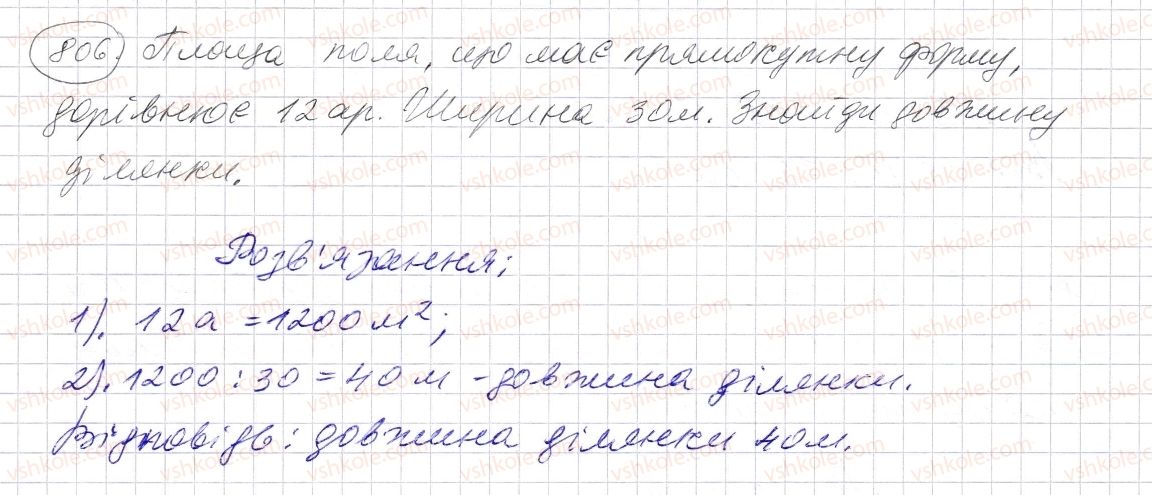 806) Площа поля, що має прямокутну форму,
дорівнює 12 ар. Ширина 30 м. Знайди довжину
ділянки.
Розв'язання:
1). 12 а = 1200 м²;
2). 1200 : 30 = 40 м - довжина ділянки.
Відповідь: довжина ділянки 40 м.